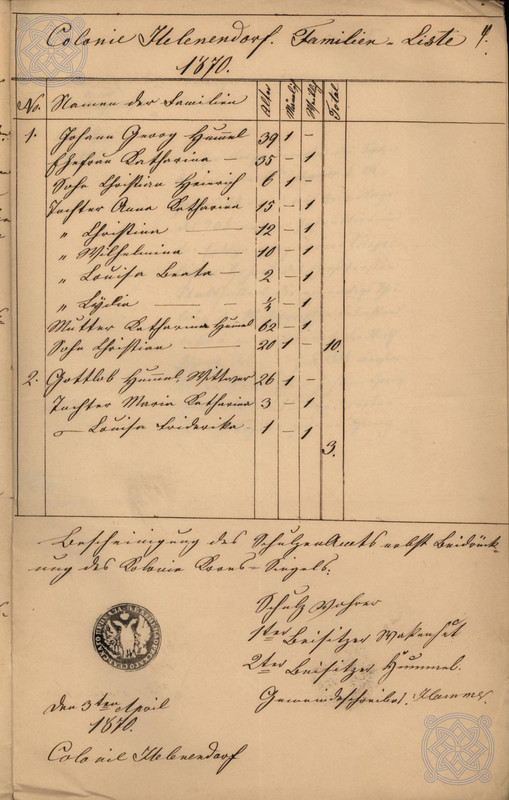 Colonie Helenendorf. Familien-Liste
1870.
No. Namen der Familien Alter Männlich Weiblich Total
1. Johann Georg Hummel 39 1 –
Ehefrau Katharina — 35 – 1
Sohn Christian Heinrich 6 1 –
Tochter Anna Katharina 15 – 1
" Christina — 12 – 1
" Wilhelmina — 10 – 1
" Louisa Berta — 2 – 1
" Lydia — – 1
Mutter Katharina Humel 62 – 1
Sohn Christian — 20 1 – 10.
2. Gottlob Hummel, Wittwer 26 1 –
Tochter Maria Katharina 3 – 1
– Louisa Friderika 1 – 1
3.
Bescheinigung des Schulzen Amts nebst Beidrück-
ung des Kolonie Siegels.
Schulz Vohrer
1ter Beisitzer Wakenhut
2ter Beisitzer Hummel.
Gemeindeschreiber.
den 3ten April
1870.
Colonie Helenendorf